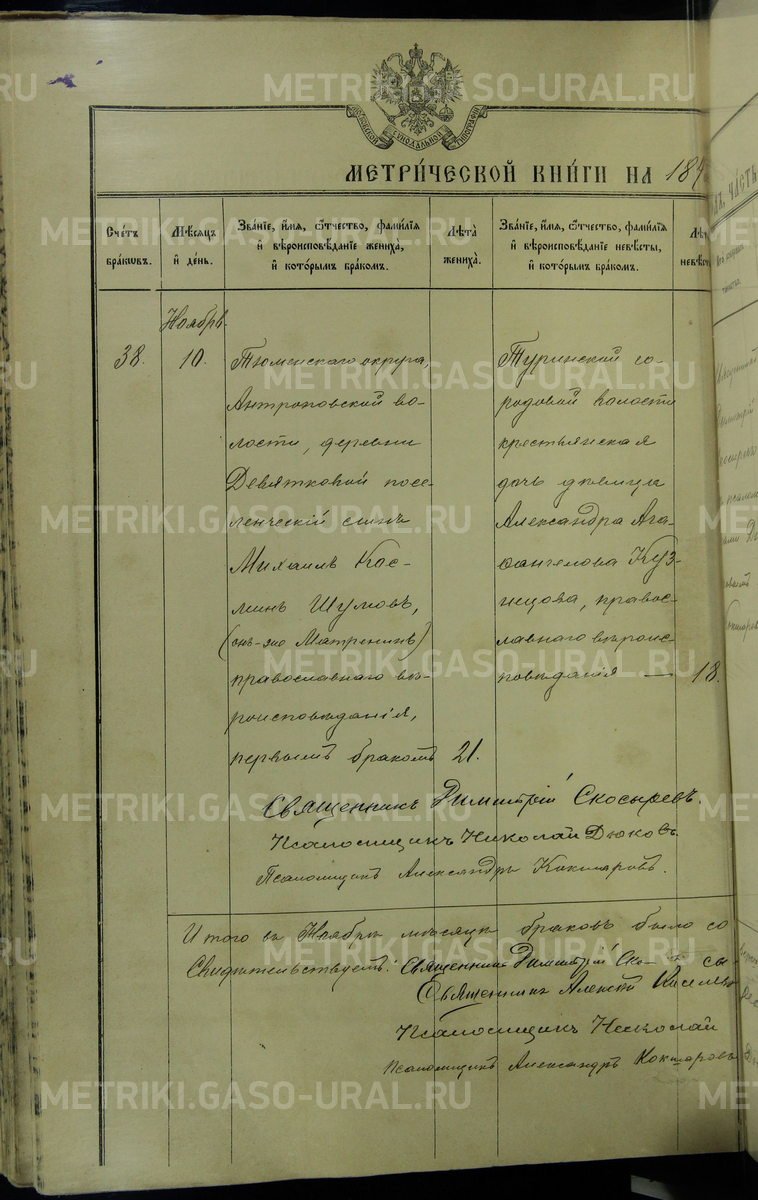 METRIKI.GASO-URAL.RU
МЕТРИ́ЧЕСКОЙ КНИ́ГИ НА 189
Сче́тъ бра́ковъ.
Мѣ́сяцъ и҆ де́нь.
Зва́нїе, и҆́мя, ѻ҆́тчество, фами́лїя и҆ вѣроисповѣ́данїе жениха̀, и҆ кото́рымъ бра́комъ.
Лѣта̀ жениха̀.
Зва́нїе, и҆́мя, ѻ҆́тчество, фами́лїя и҆ вѣроисповѣ́данїе невѣ́сты, и҆ кото́рымъ бра́комъ.
Ноябрь.
38.
10.
Тюменскаго округа,
Антроповской во-
лости, деревни
Девятковой посе-
ленческій сынъ
Михаилъ Кос-
минъ Шумовъ,
(онъ-же Матренинъ)
православнаго вѣ-
роисповѣданія,
первымъ бракомъ
21.
Туринской го-
родовой волости
крестьянская
дочь дѣвица
Александра Ага-
фангелова Куз-
нецова, правос-
лавнаго вѣроис-
повѣданія —
18.
Священникъ Димитрій Скосыревъ.
Псаломщикъ Николай Дюковъ.
Псаломщикъ Александръ Кокшаровъ.
Итого въ Ноябрѣ мѣсяцѣ браковъ было со
Свидѣтельствуемъ: Священникъ Димитрій Ско- сы-
Священникъ Алексій Киселевъ
Псаломщикъ Николай
Псаломщикъ Александръ Кокшаровъ